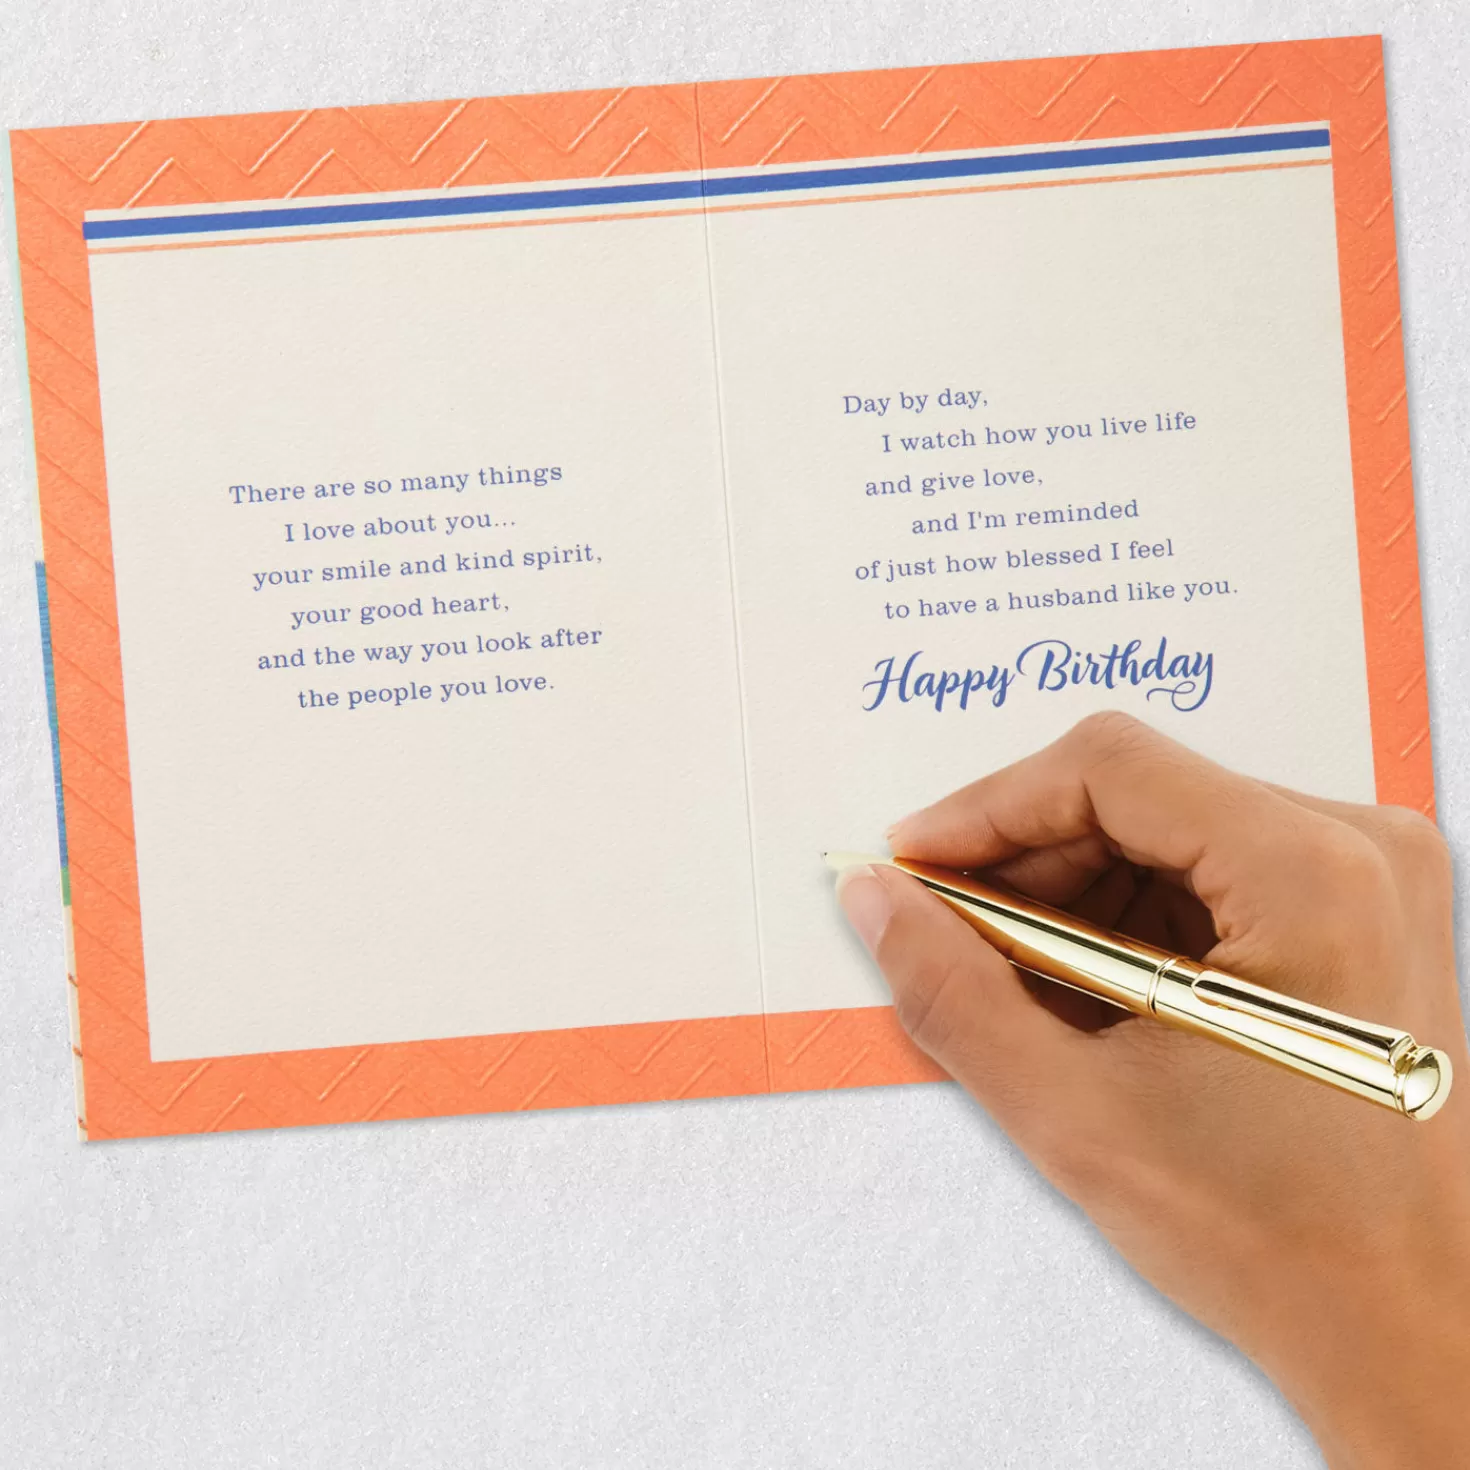 There are so many things
I love about you...
your smile and kind spirit,
your good heart,
and the way you look after
the people you love.
Day by day,
I watch how you live life
and give love,
and I'm reminded
of just how blessed I feel
to have a husband like you.
Happy Birthday